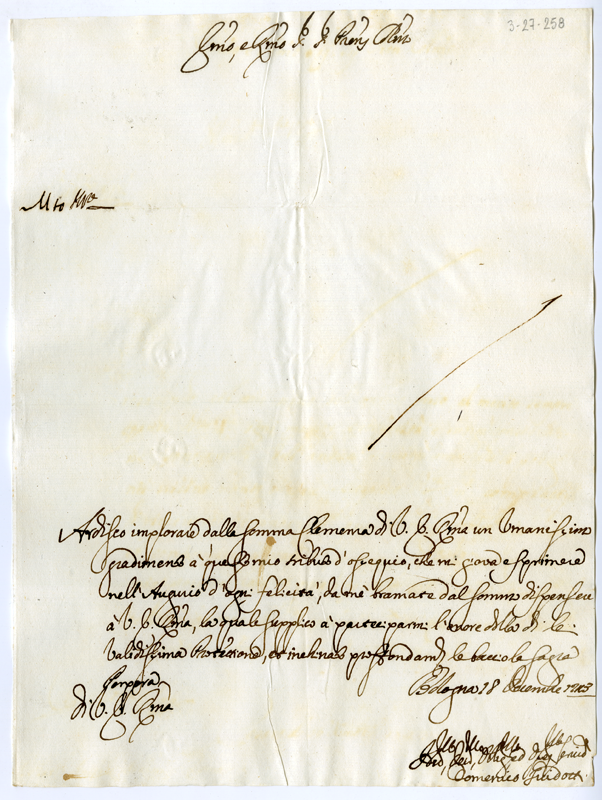 3-27-258
Emo, e Rmo Sr. Sr. Prone Colmo
Ardisco implorare dalla somma Clemenza di V. E. Rma un Umanissimo
gradimento à questo mio tributo d'ossequio, che mi giova esprimere
nell'Augurio d'ogni felicità, da me bramate dal sommo dispensiere
à V. E. Rma, la quale supplico à parteciparmi l'onore della di lei
validissima Protezione, et inchinato profondamte le baccio la Sagra
Porpora
Di V. E. Rma
Bologna 18 Decembre
Domenico Guidotti